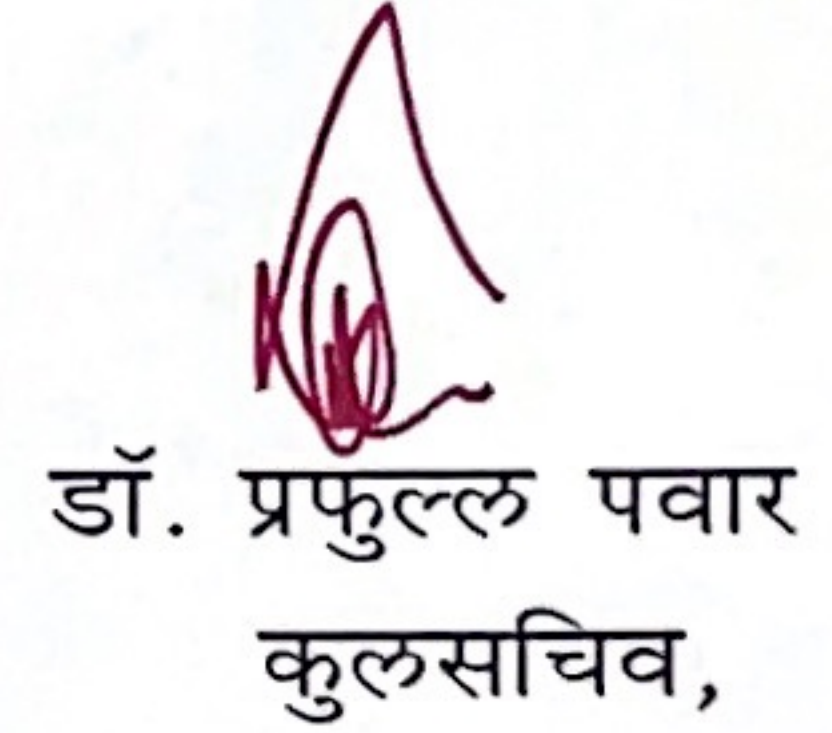 डॉ. प्रफुल्ल पवार
कुलसचिव,